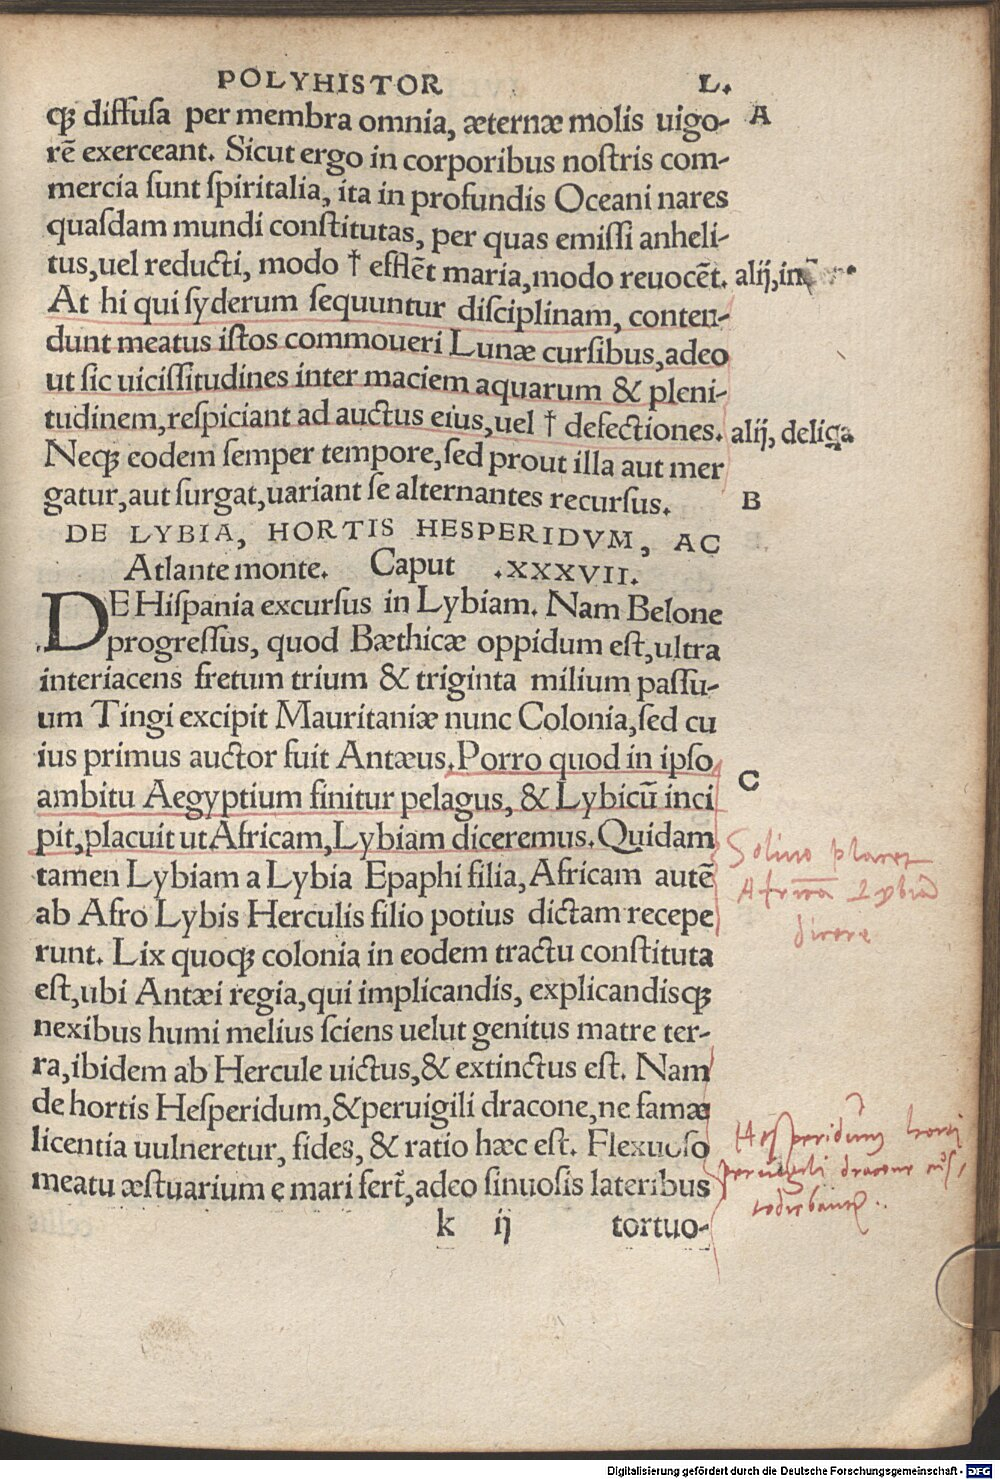 POLYHISTOR L.
q́ꝫ diffusa per membra omnia, æternæ molis uigo- A
rē exerceant. Sicut ergo in corporibus nostris com-
mercia sunt spiritalia, ita in profundis Oceani nares
quasdam mundi constitutas, per quas emissi anheli-
tus,uel reducti, modo † efflēt maria,modo reuocēt. alij,in
At hi qui syderum sequuntur disciplinam, conten-
dunt meatus istos commoueri Lunæ cursibus,adeo
ut sic uicissitudines inter maciem aquarum & pleni-
tudinem,respiciant ad auctus eius,uel † defectiones. alij, deliqa
Neqꝫ eodem semper tempore,sed prout illa aut mer
gatur,aut surgat,uariant se alternantes recursus.
B
DE LYBIA, HORTIS HESPERIDVM, AC
Atlante monte. Caput .XXXVII.
DE Hispania excursus in Lybiam. Nam Belone
progressus, quod Bæthicæ oppidum est,ultra
interiacens fretum trium & triginta milium passu-
um Tingi excipit Mauritaniæ nunc Colonia,sed cu
ius primus auctor fuit Antæus.Porro quod in ipso
C
ambitu Aegyptium finitur pelagus, & Lybicū inci
pit,placuit ut Africam,Lybiam diceremus.Quidam
tamen Lybiam a Lybia Epaphi filia,Africam autē
ab Afro Lybis Herculis filio potius dictam recepe
runt. Lix quoqꝫ colonia in eodem tractu constituta
est,ubi Antæi regia,qui implicandis, explicandisqꝫ
nexibus humi melius sciens uelut genitus matre ter-
ra,ibidem ab Hercule uictus,& extinctus est. Nam
de hortis Hesperidum,&peruigili dracone,ne famæ
licentia uulneretur, fides, & ratio hæc est. Flexuoso
meatu æstuarium e mari fert̃,adeo sinuosis lateribus
k ij tortuo-
Solino placet
Africā Lybiā
dicere
Hesperidum horti
pervigili dracone cus-
todiebantur.
Digitalisierung gefördert durch die Deutsche Forschungsgemeinschaft - DFG